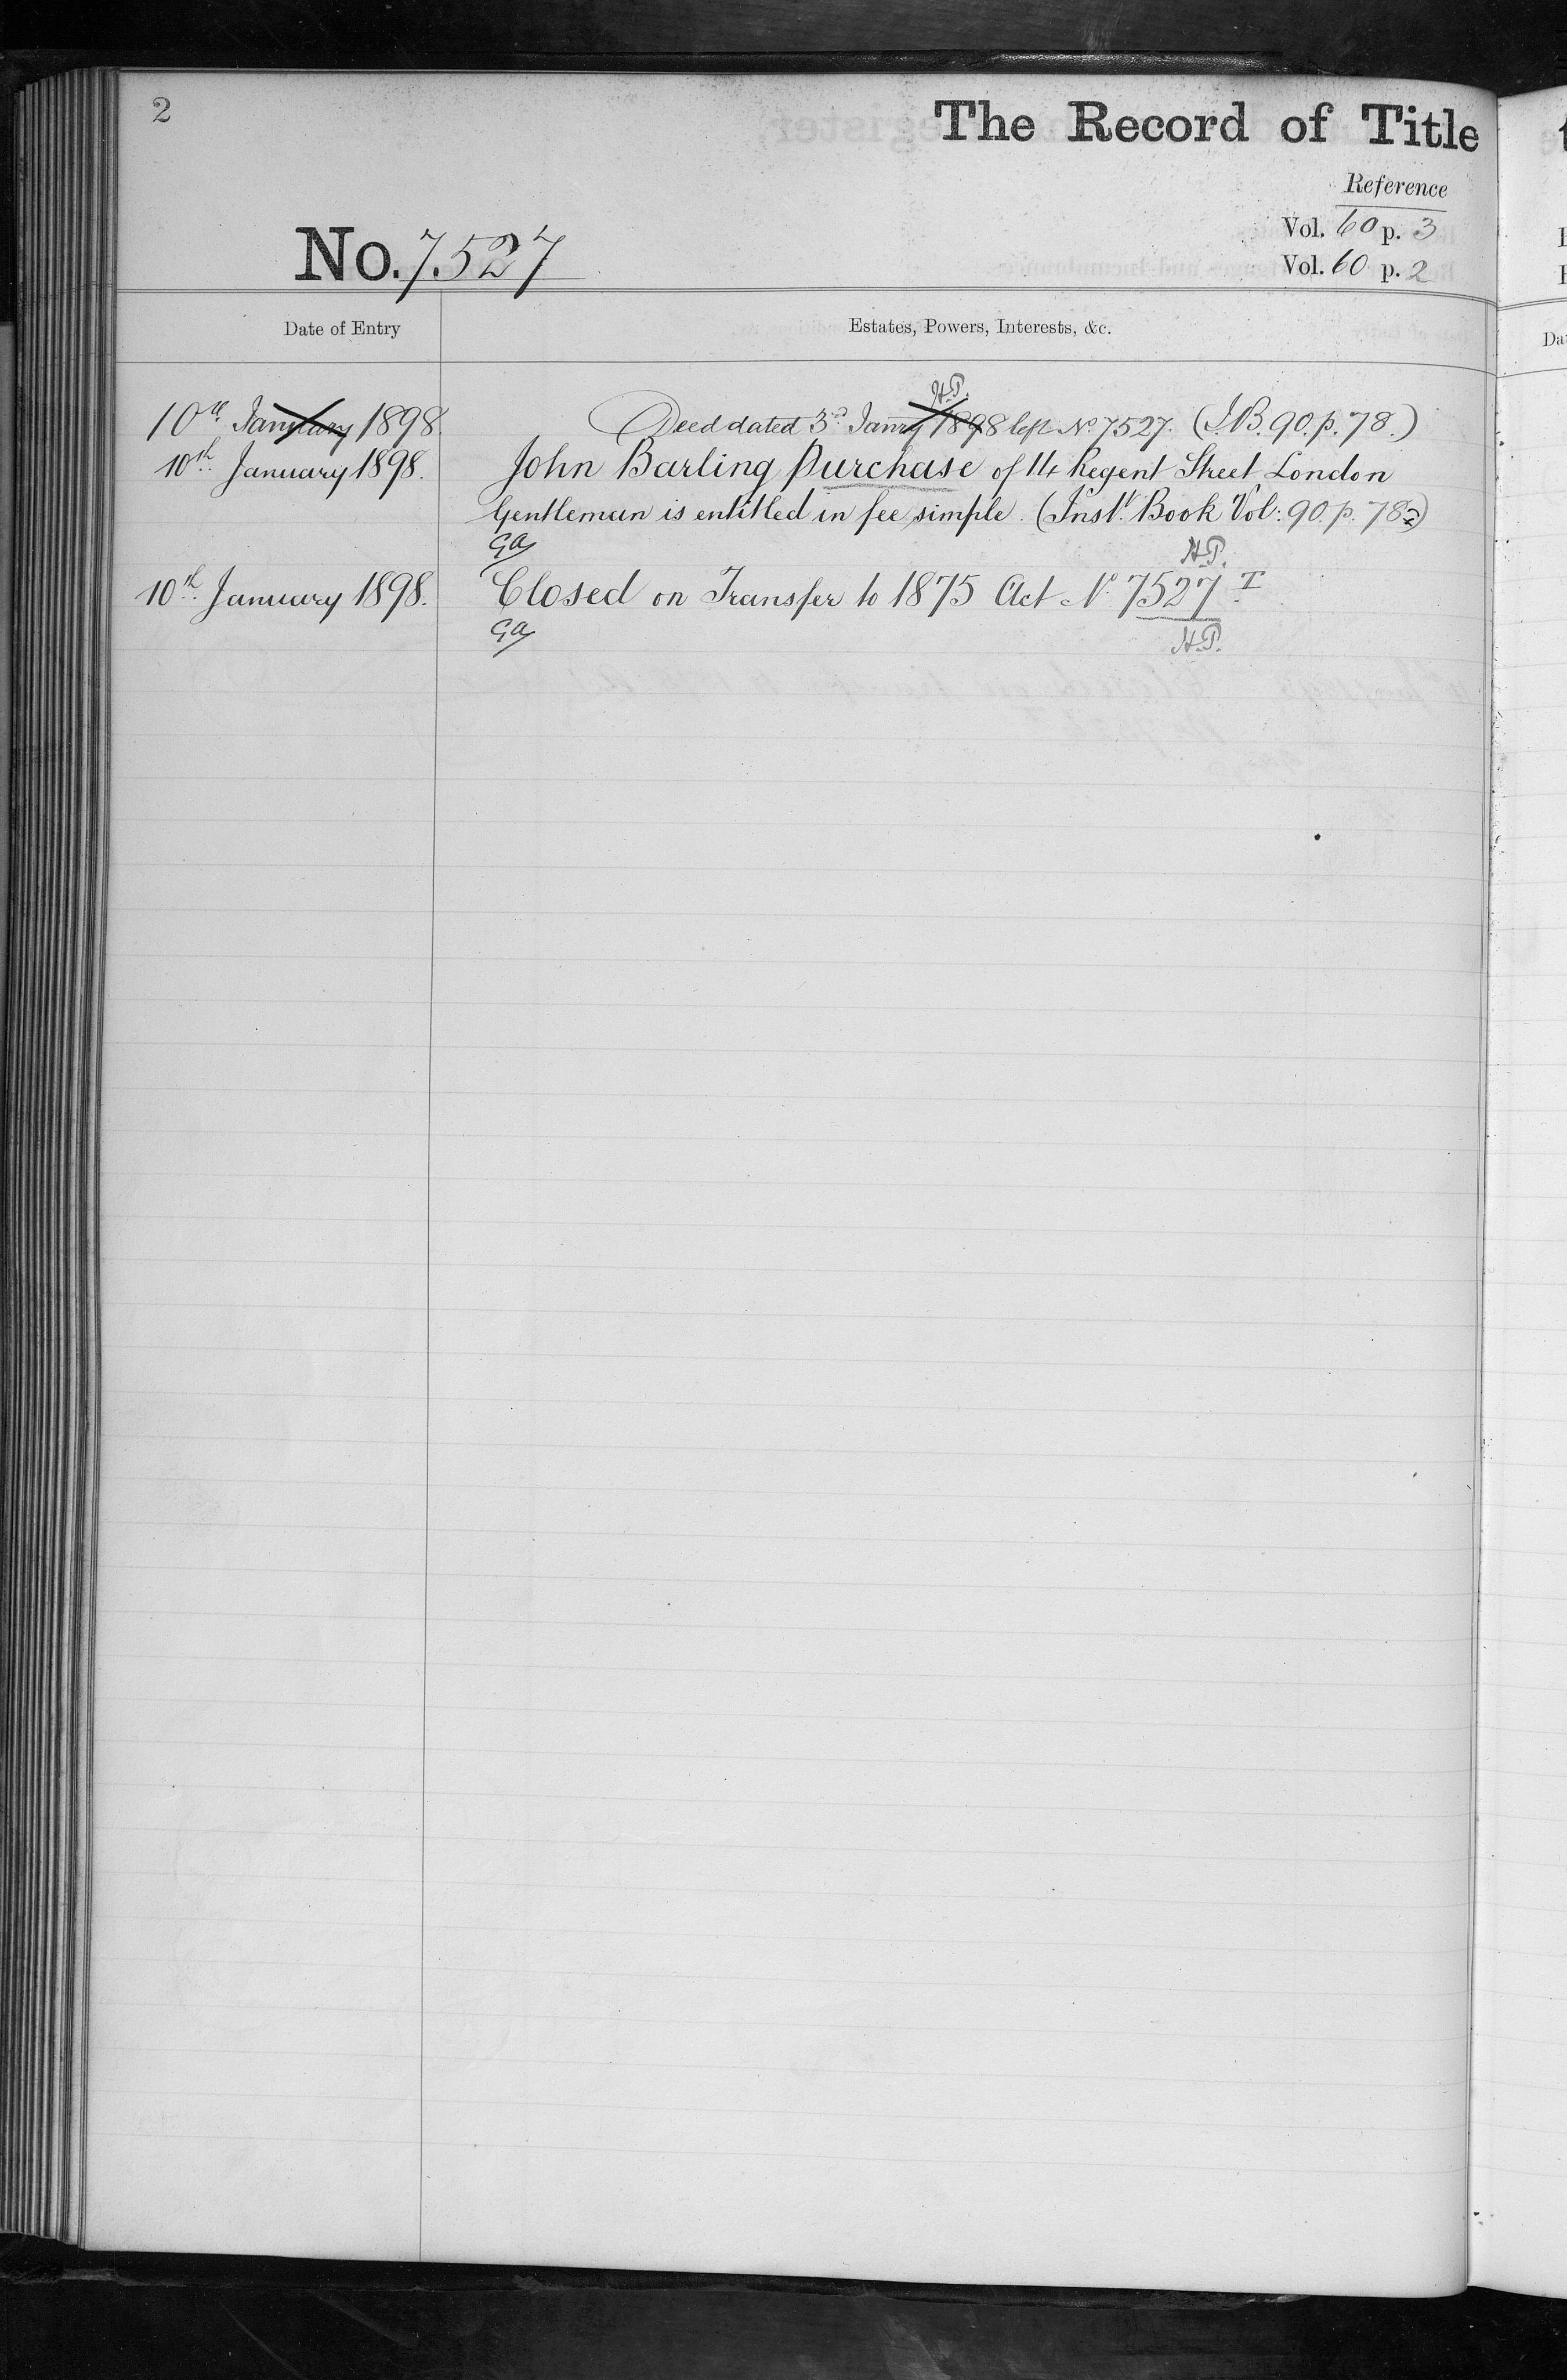 2
The Record of Title
Reference
Vol. 60 p. 3
Vol. 60 p. 2
No. 7527
Date of Entry
Estates, Powers, Interests, &c.
H.P.
10th January 1898. Deed dated 3d Janry 1898 left No 7527. (I.B. 90. p. 78.)
10th January 1898. John Barling Purchase of 14 Regent Street London
Gentleman is entitled in fee simple. (Inst. Book Vol: 90. p. 78)
GA H.P.
10th January 1898. Closed on Transfer to 1875 Act No 7527 I
GA H.P.